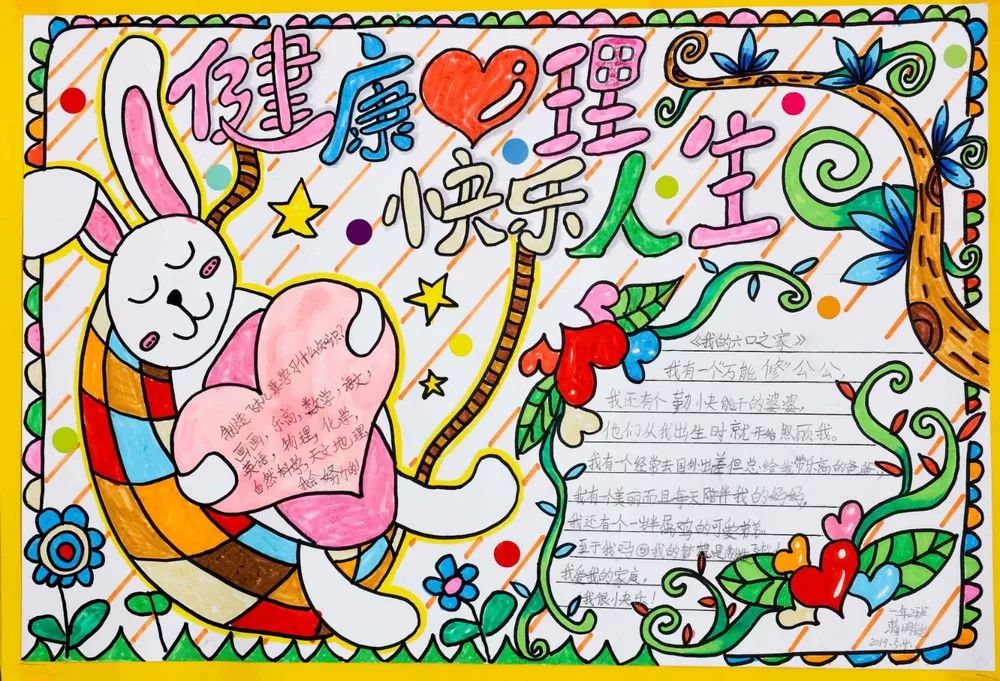 健康理
快乐人生
制造飞机要学习什么知识?
画画,乐高,数学,语文,
英语,物理,化学,
自然科学,天文地理.
我会努力的
《我的六口之家》
我有一个“万能修”公公,
我还有个勤快能干的婆婆,
他们从我出生时就开始照顾我。
我有个经常去国外出差但总给我带乐高的爸爸,
我有个美丽而且每天陪伴我的妈妈,
我还有个一岁半属鸡的可爱弟弟
至于我吗我的梦想是制造飞机!
我爱我的家庭。
我很快乐!
一年2班
2019.5.4.